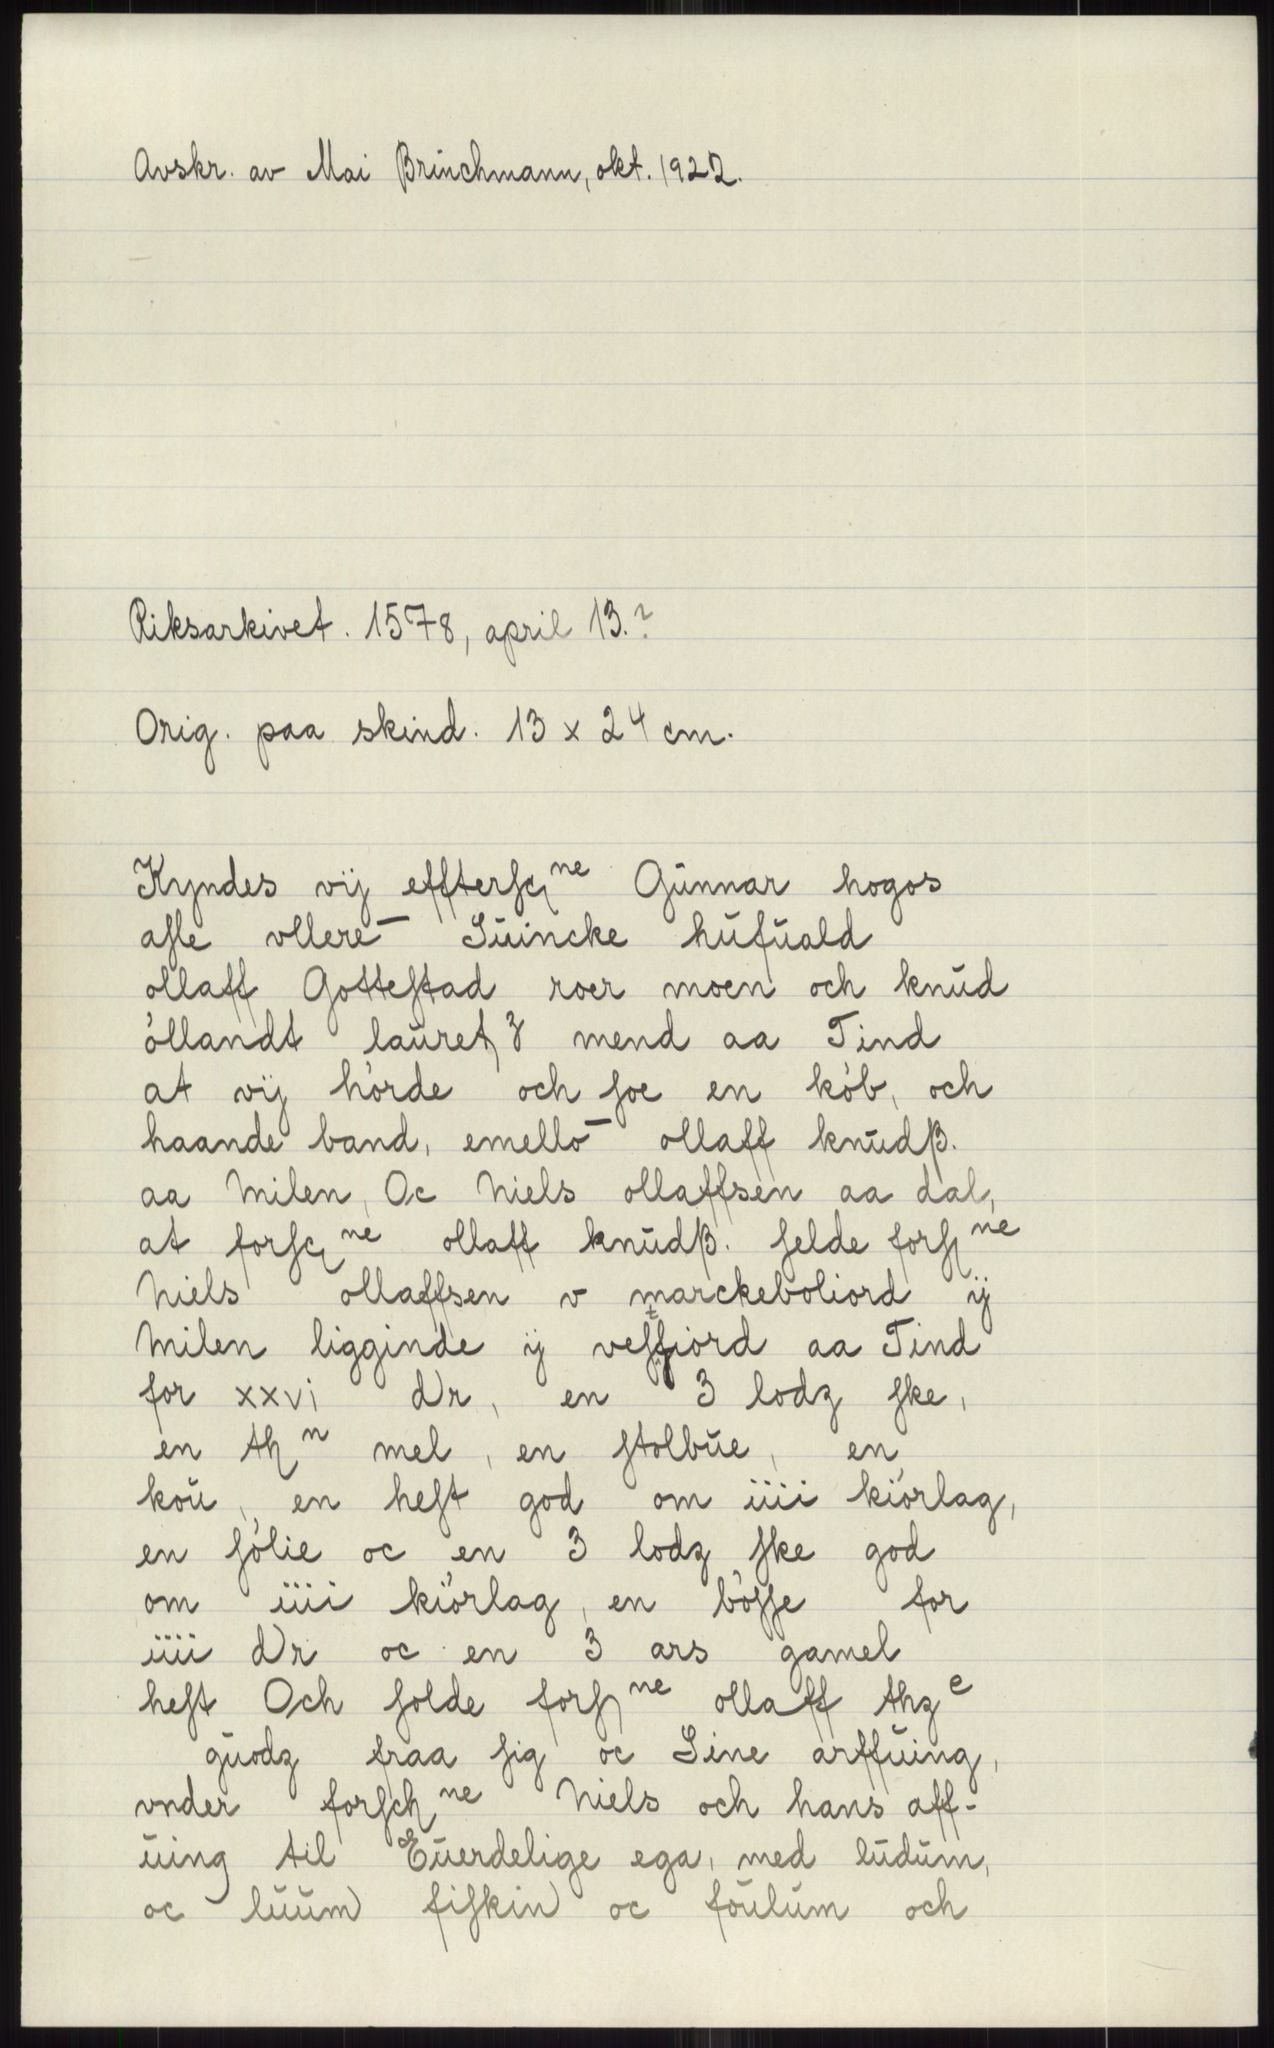 Avskr. av Mai Brinchmann, okt. 1922.
Riksarkivet. 1578, april 13.?
Orig. paa skind. 13 x 24 cm.
Kyndes vij effterſc ne Gŭnnar hogos
aſle vllere‾ Sŭincke hŭfŭald
ollaff Gotteſtad roer moen och knŭd
óllandt laŭret 3 mend aa Tind
at vij hórde och ſoe en kób, och
haande band, emello‾ ollaff knŭdß.
aa Milen, Oc Niels ollaffsen aa dal,
at forſc ne ollaff knŭdß. ſelde forſ ne
Niels ollaffsen v marckeboliord ij
Milen ligginde ij veſtfiord aa Tind
for xxvi dr, en 3 lodz ſke,
en th n mel, en ſtolbŭe, en
koŭ, en heſt god om iiii kiórlag,
en ſólie oc en 3 lodz ſke god
om iiii kiórlag, en bóſſe for
iiii dr oc en 3 ars gamel
heſt Och ſolde forſ ne ollaff thz e
gŭodz fraa ſig oc Sine arffŭing,
vnder forſch ne Niels och hans aff-
ŭing til Eŭerdelige ega, med lŭdŭm,
oc lŭŭm fiſkin oc foŭlŭm och